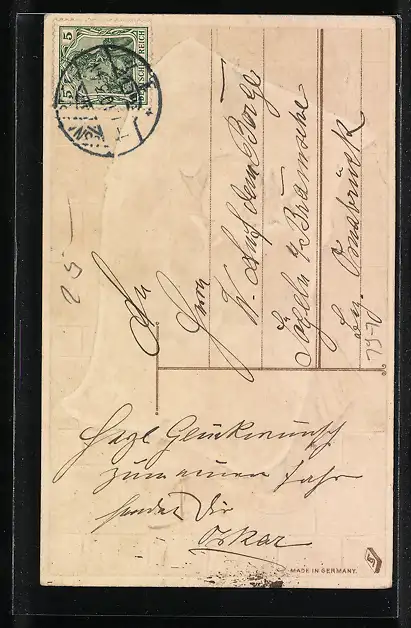 5
DEUTSCHES REICH
25 —
An
Herrn
W. Auf dem Berge
Sögeln b/ Bramsche
Bz. Osnabrück
Herzl Glückwunsch
zum neuen Jahr
sendet Dir
Oskar
MADE IN GERMANY.